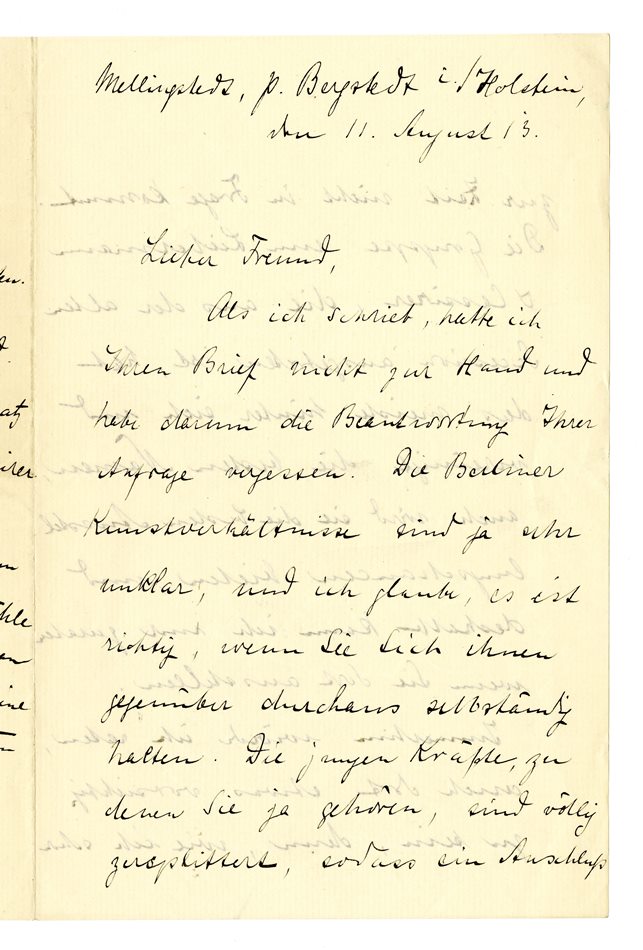 Mellingstedt, p. Bergstedt i./Holstein,
den 11. August 13.
Lieber Freund,
Als ich schrieb, hatte ich
Ihren Brief nicht zur Hand und
habe darum die Beantwortung Ihrer
Anfrage vergessen. Die Berliner
Kunstverhältnisse sind ja sehr
unklar, und ich glaube, es ist
richtig, wenn Sie Sich ihnen
gegenüber durchaus selbständig
halten. Die jungen Kräfte, zu
denen Sie ja gehören, sind völlig
zersplittert, sodass ein Anschluß